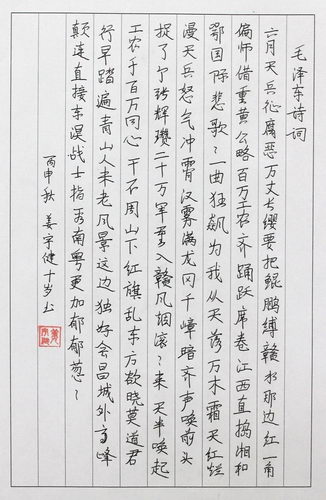 毛泽东诗词
六月天兵征腐恶万丈长缨要把鲲鹏缚赣水那边红一角
偏师借重黄公略百万工农齐踊跃席卷江西直捣湘和
鄂国际悲歌〻一曲狂飙为我从天落万木霜天红烂
漫天兵怒气冲霄汉雾满龙冈千嶂暗齐声唤前头
捉了张辉瓒二十万军重入赣风烟滚〻来天半唤起
工农千百万同心干不周山下红旗乱东方欲晓莫道君
行早踏遍青山人未老风景这边独好会昌城外高峰
颠连直接东溟战士指看南粤更加郁郁葱〻
丙申秋 姜宇健十岁书